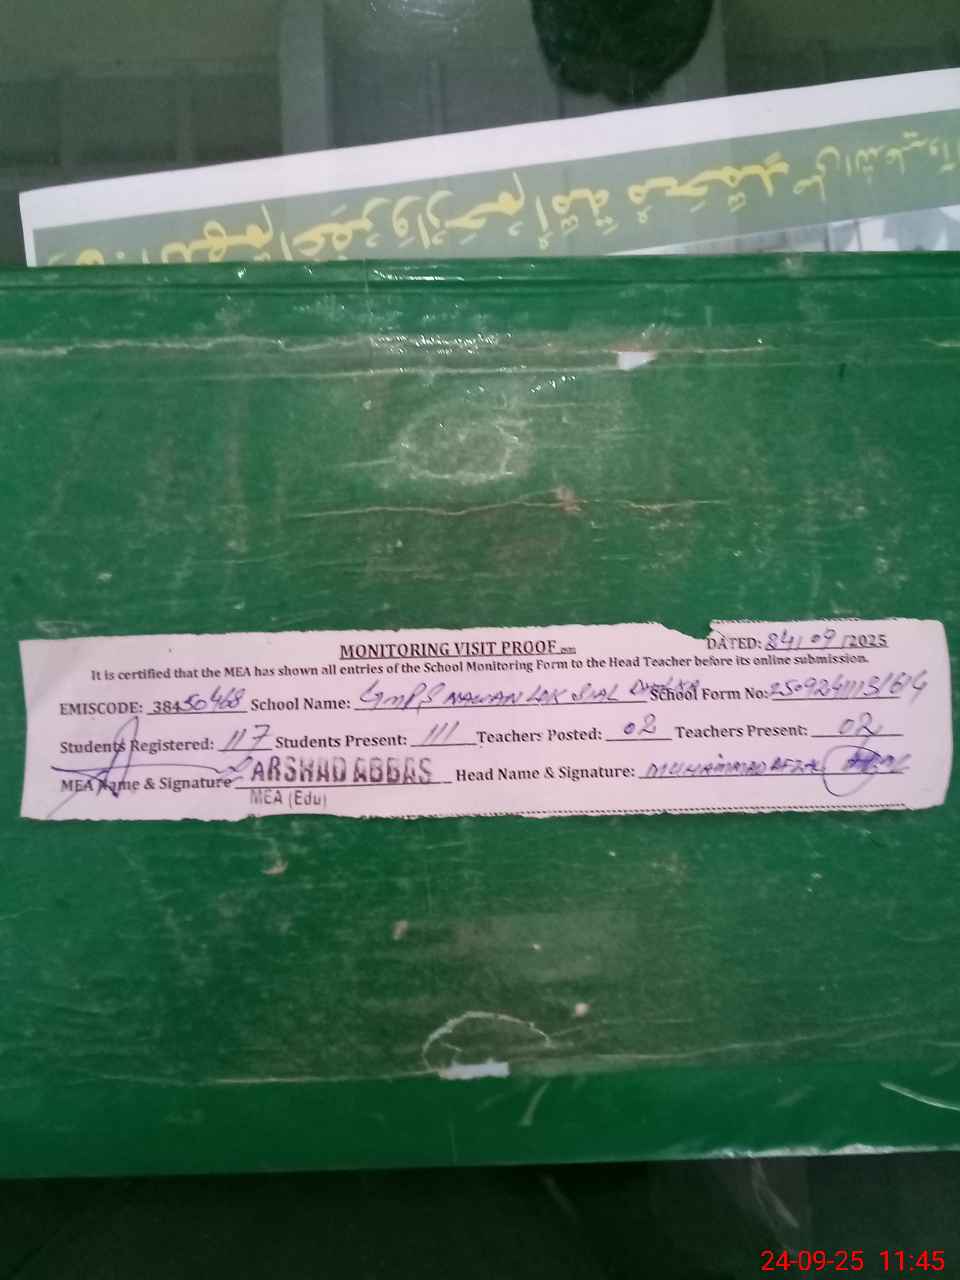 اللهم اغفر وارحم أمة محمد صلى الله عليه وآ
MONITORING VISIT PROOF DATED: 24/09/2025
It is certified that the MEA has shown all entries of the School Monitoring Form to the Head Teacher before its online submission.
EMISCODE: 38450468 School Name: GMPS NAWAN LAK SIAL School Form No:
Students Registered: 117 Students Present: 111 Teachers Posted: 02 Teachers Present: 02
MEA Name & Signature ARSHAD ABBAS Head Name & Signature: MUHAMMAD AFZAL
MEA (Edu)
24-09-25 11:45